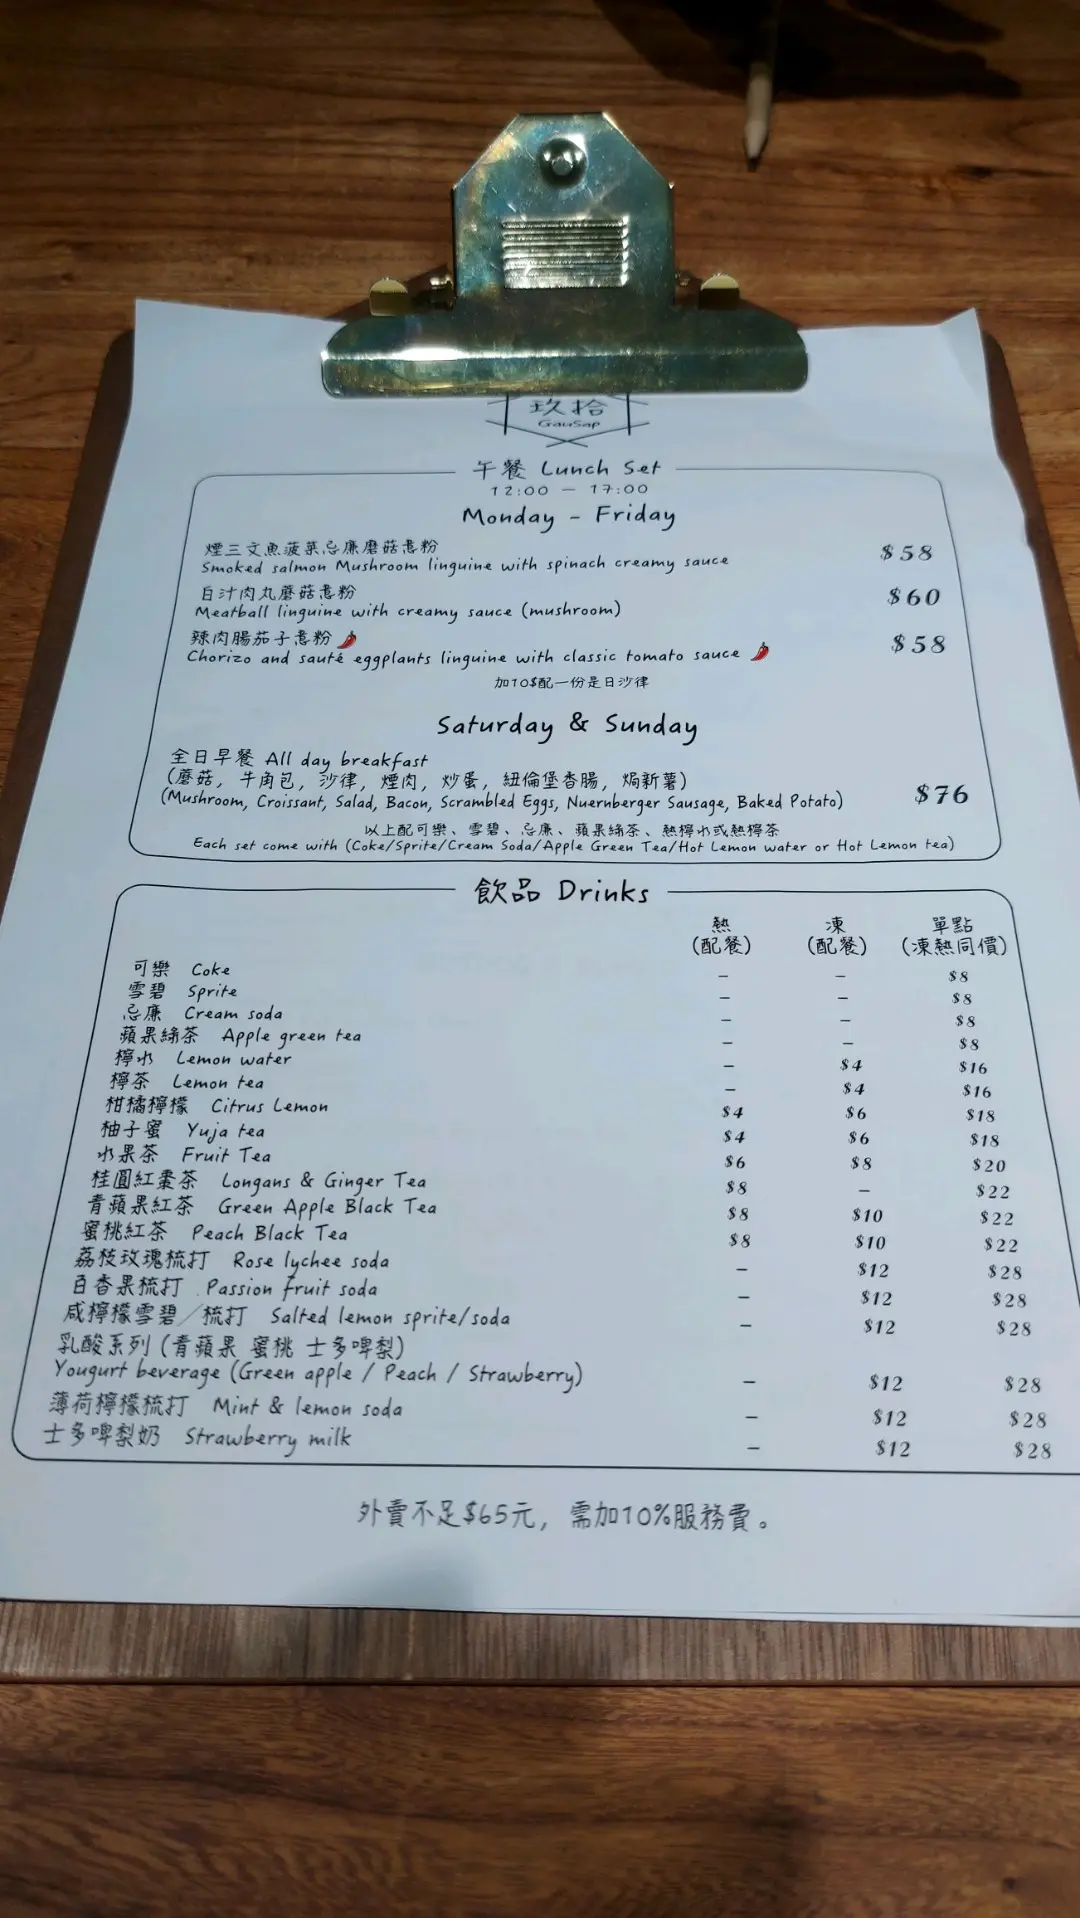 玖拾
GauSap
午餐 Lunch Set
12:00 — 17:00
Monday - Friday
煙三文魚菠菜忌廉磨菇意粉 $58
Smoked salmon Mushroom linguine with spinach creamy sauce
白汁肉丸蘑菇意粉 $60
Meatball linguine with creamy sauce (mushroom)
辣肉腸茄子意粉 $58
Chorizo and sauté eggplants linguine with classic tomato sauce
加10$配一份是日沙律
Saturday & Sunday
全日早餐 All day breakfast
(蘑菇, 牛角包, 沙律, 煙肉, 炒蛋, 紐倫堡香腸, 焗新薯)
(Mushroom, Croissant, Salad, Bacon, Scrambled Eggs, Nuernberger Sausage, Baked Potato) $76
以上配可樂、雪碧、忌廉、蘋果綠茶、熱檸水或熱檸茶
Each set come with (Coke/Sprite/Cream Soda/Apple Green Tea/Hot Lemon water or Hot Lemon tea)
飲品 Drinks
熱 凍 單點
(配餐) (配餐) (凍熱同價)
可樂 Coke – – $8
雪碧 Sprite – – $8
忌廉 Cream soda – – $8
蘋果綠茶 Apple green tea – – $8
檸水 Lemon water – $4 $16
檸茶 Lemon tea – $4 $16
柑橘檸檬 Citrus Lemon $4 $6 $18
柚子蜜 Yuja tea $4 $6 $18
水果茶 Fruit Tea $6 $8 $20
桂圓紅棗茶 Longans & Ginger Tea $8 – $22
青蘋果紅茶 Green Apple Black Tea $8 $10 $22
蜜桃紅茶 Peach Black Tea $8 $10 $22
荔枝玫瑰梳打 Rose lychee soda – $12 $28
百香果梳打 Passion fruit soda – $12 $28
咸檸檬雪碧/梳打 Salted lemon sprite/soda – $12 $28
乳酸系列 (青蘋果 蜜桃 士多啤梨)
Yougurt beverage (Green apple / Peach / Strawberry) – $12 $28
薄荷檸檬梳打 Mint & lemon soda – $12 $28
士多啤梨奶 Strawberry milk – $12 $28
外賣不足$65元, 需加10%服務費。